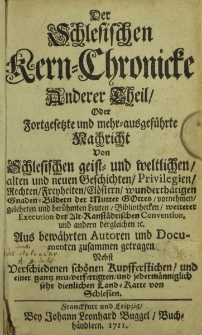 Der
Schlesischen
Kern-Chronicke
Anderer Theil/
Oder
Fortgesetzte und mehr-ausgeführte
Nachricht
Von
Schlesischen geist- und weltlichen/
alten und neuen Geschichten/ Privilegien/
Rechten/ Freyheiten/ Clöstern/ wunderthätigen
Gnaden-Bildern der Mutter Gottes/ vornehmen/
gelehrten und berühmten Leuten/ Bibliothecken/ weiterer
Execution der Alt-Ranstädischen Convention,
und andern dergleichen rc.
Aus bewährten Autoren und Docu-
menten zusammen getragen
Nebst
Verschiedenen schönen Kupfferstichen/ und
einer gantz neu verfertigten/ und jedermänniglich
sehr dienlichen Land-Karte von
Schlesien.
Franckfurt und Leipzig/
Bey Johann Leonhard Buggel/ Buch-
händlern. 1711.